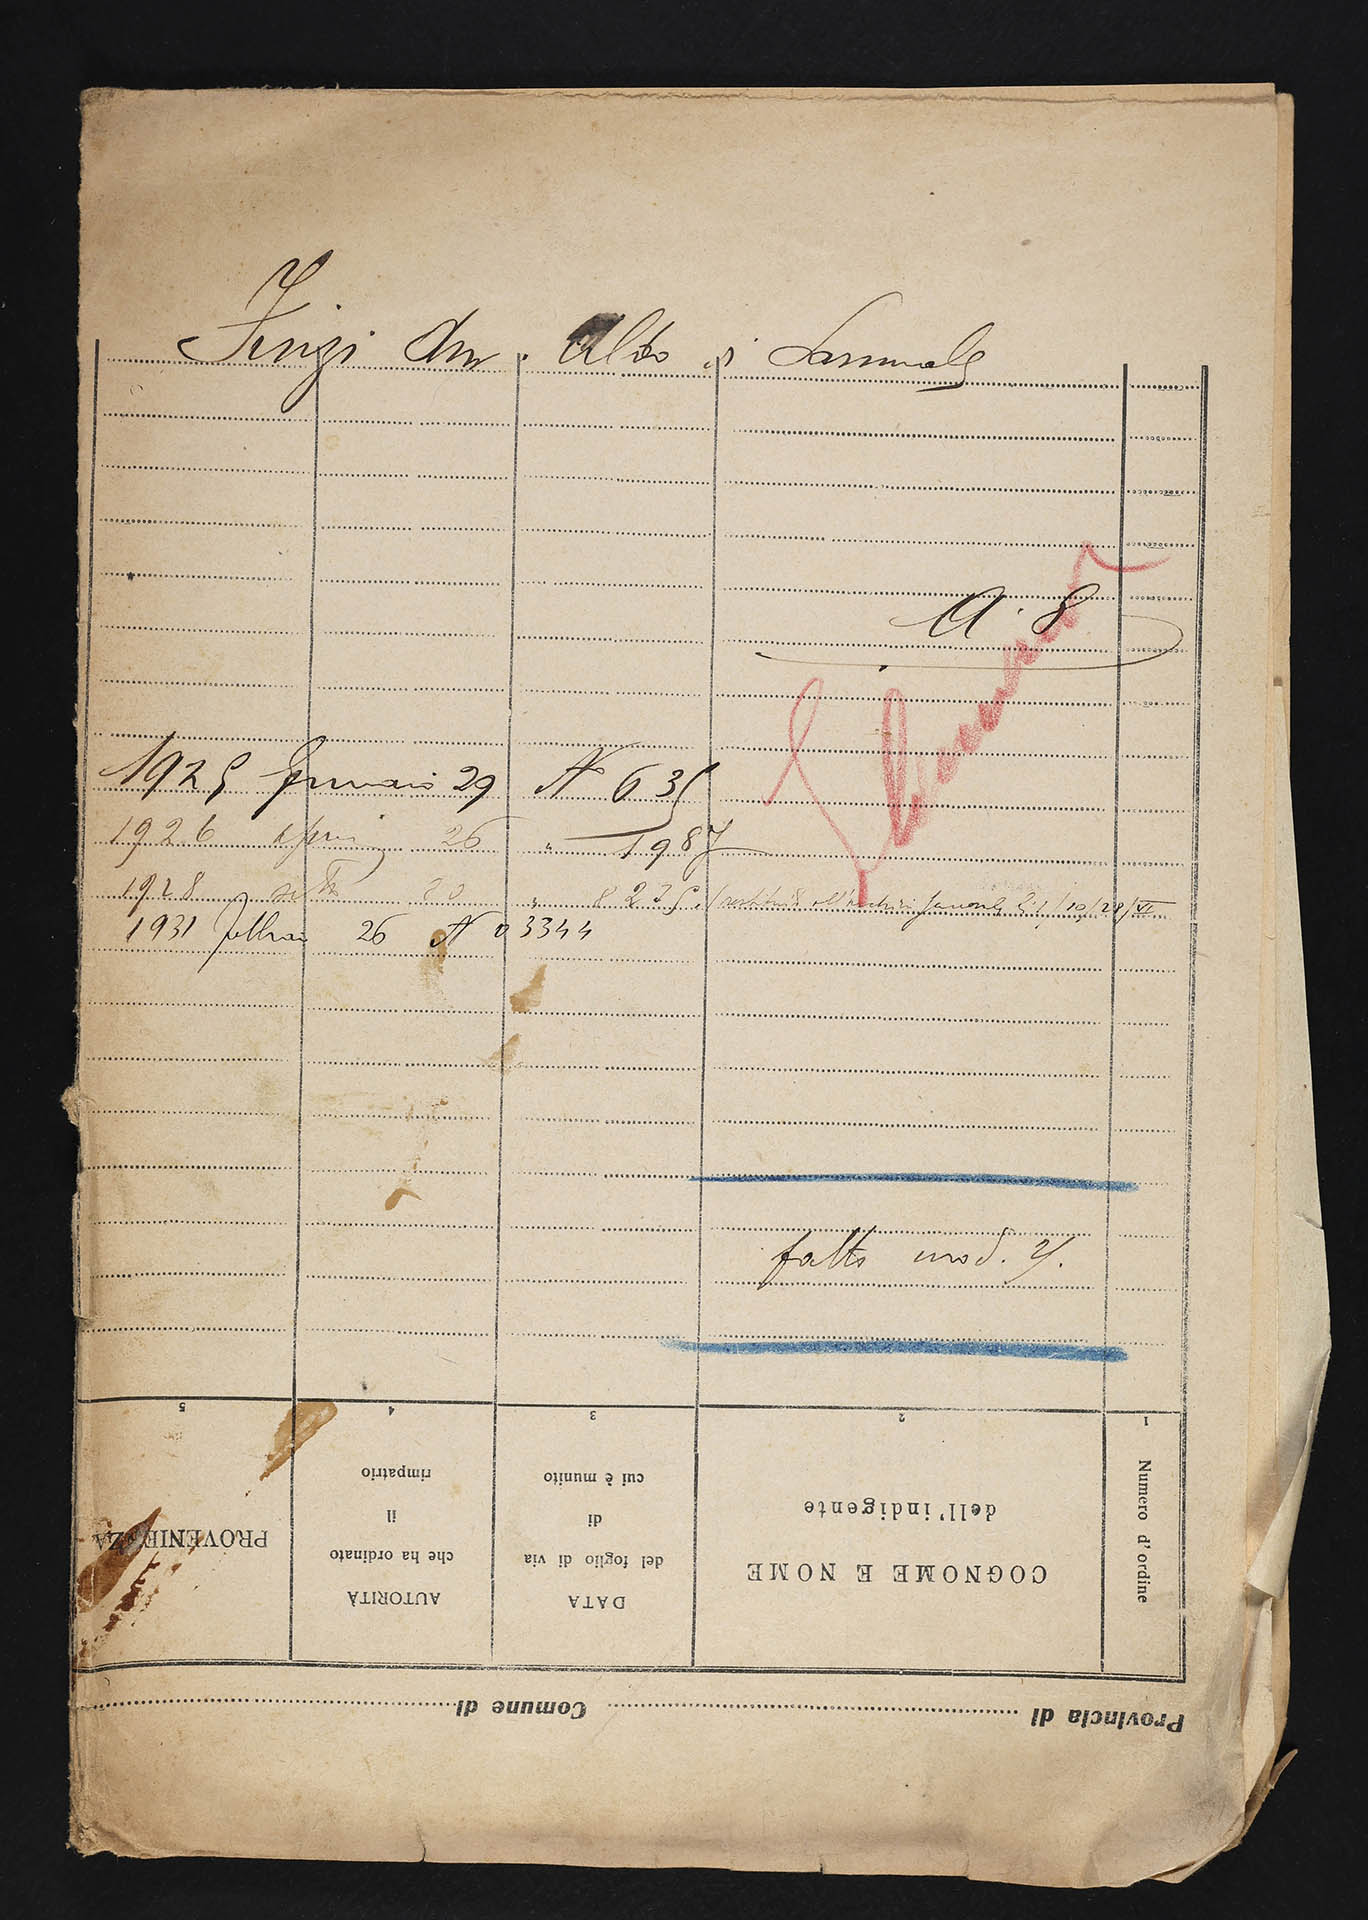 Finzi Avv. Aldo di Samuele
A. 8
1925 Gennaio 29 N 635
1926 aprile 26 " 1987
1928 sett 20 " 8235. 1/10/28/VI
1931 febbraio 26 N 03344
fatto mod. 2/.
1 2 3 4 5
Numero d'ordine
COGNOME E NOME
dell'indigente
DATA
del foglio di via
di
cui è munito
AUTORITÀ
che ha ordinato
il
rimpatrio
PROVENIENZA
Provincia di Comune di